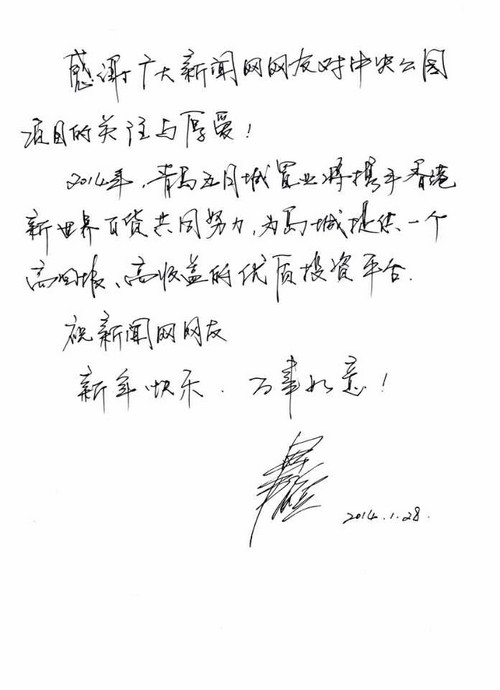 感谢广大新闻网网友对中央公园
项目的关注与厚爱!
2014年,青岛五月城置业将携手香港
新世界百货共同努力,为岛城提供一个
高回报、高收益的优质投资平台.
祝新闻网网友
新年快乐.万事如意!
2014.1.28.